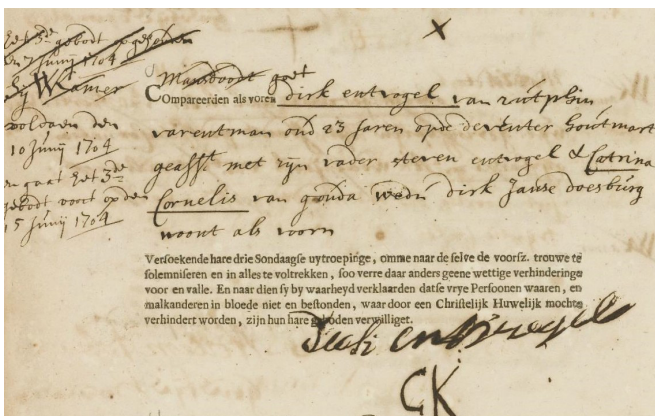 het 3de gebodt opgehouden
den 7 Junij 1704
bij W Kamer
voldaen den
10 Junij 1704
en gaet het 3de
gebodt voort op den
15 Junij 1704
goet
COmpareerden als voren dirk entvogel van zutphin
varentman oud 23 Jaren opde deventer houtmart
geasst met zijn vader steven entvogel & Catrina
Cornelis van gouda wedu dirk Janse doesburg
woont als voorn
Versoekende hare drie Sondaagse uytroepinge, omme naar de selve de voorsz. trouwe te
solemniseren en in alles te voltrekken, soo verre daar anders geene wettige verhinderinge
voor en valle. En naar dien sy by waarheyd verklaarden datse vrye Persoonen waaren, en
malkanderen in bloede niet en bestonden, waar door een Christelijk Huwelijk mochte
verhindert worden, zijn hun hare geboden verwilliget.
CK